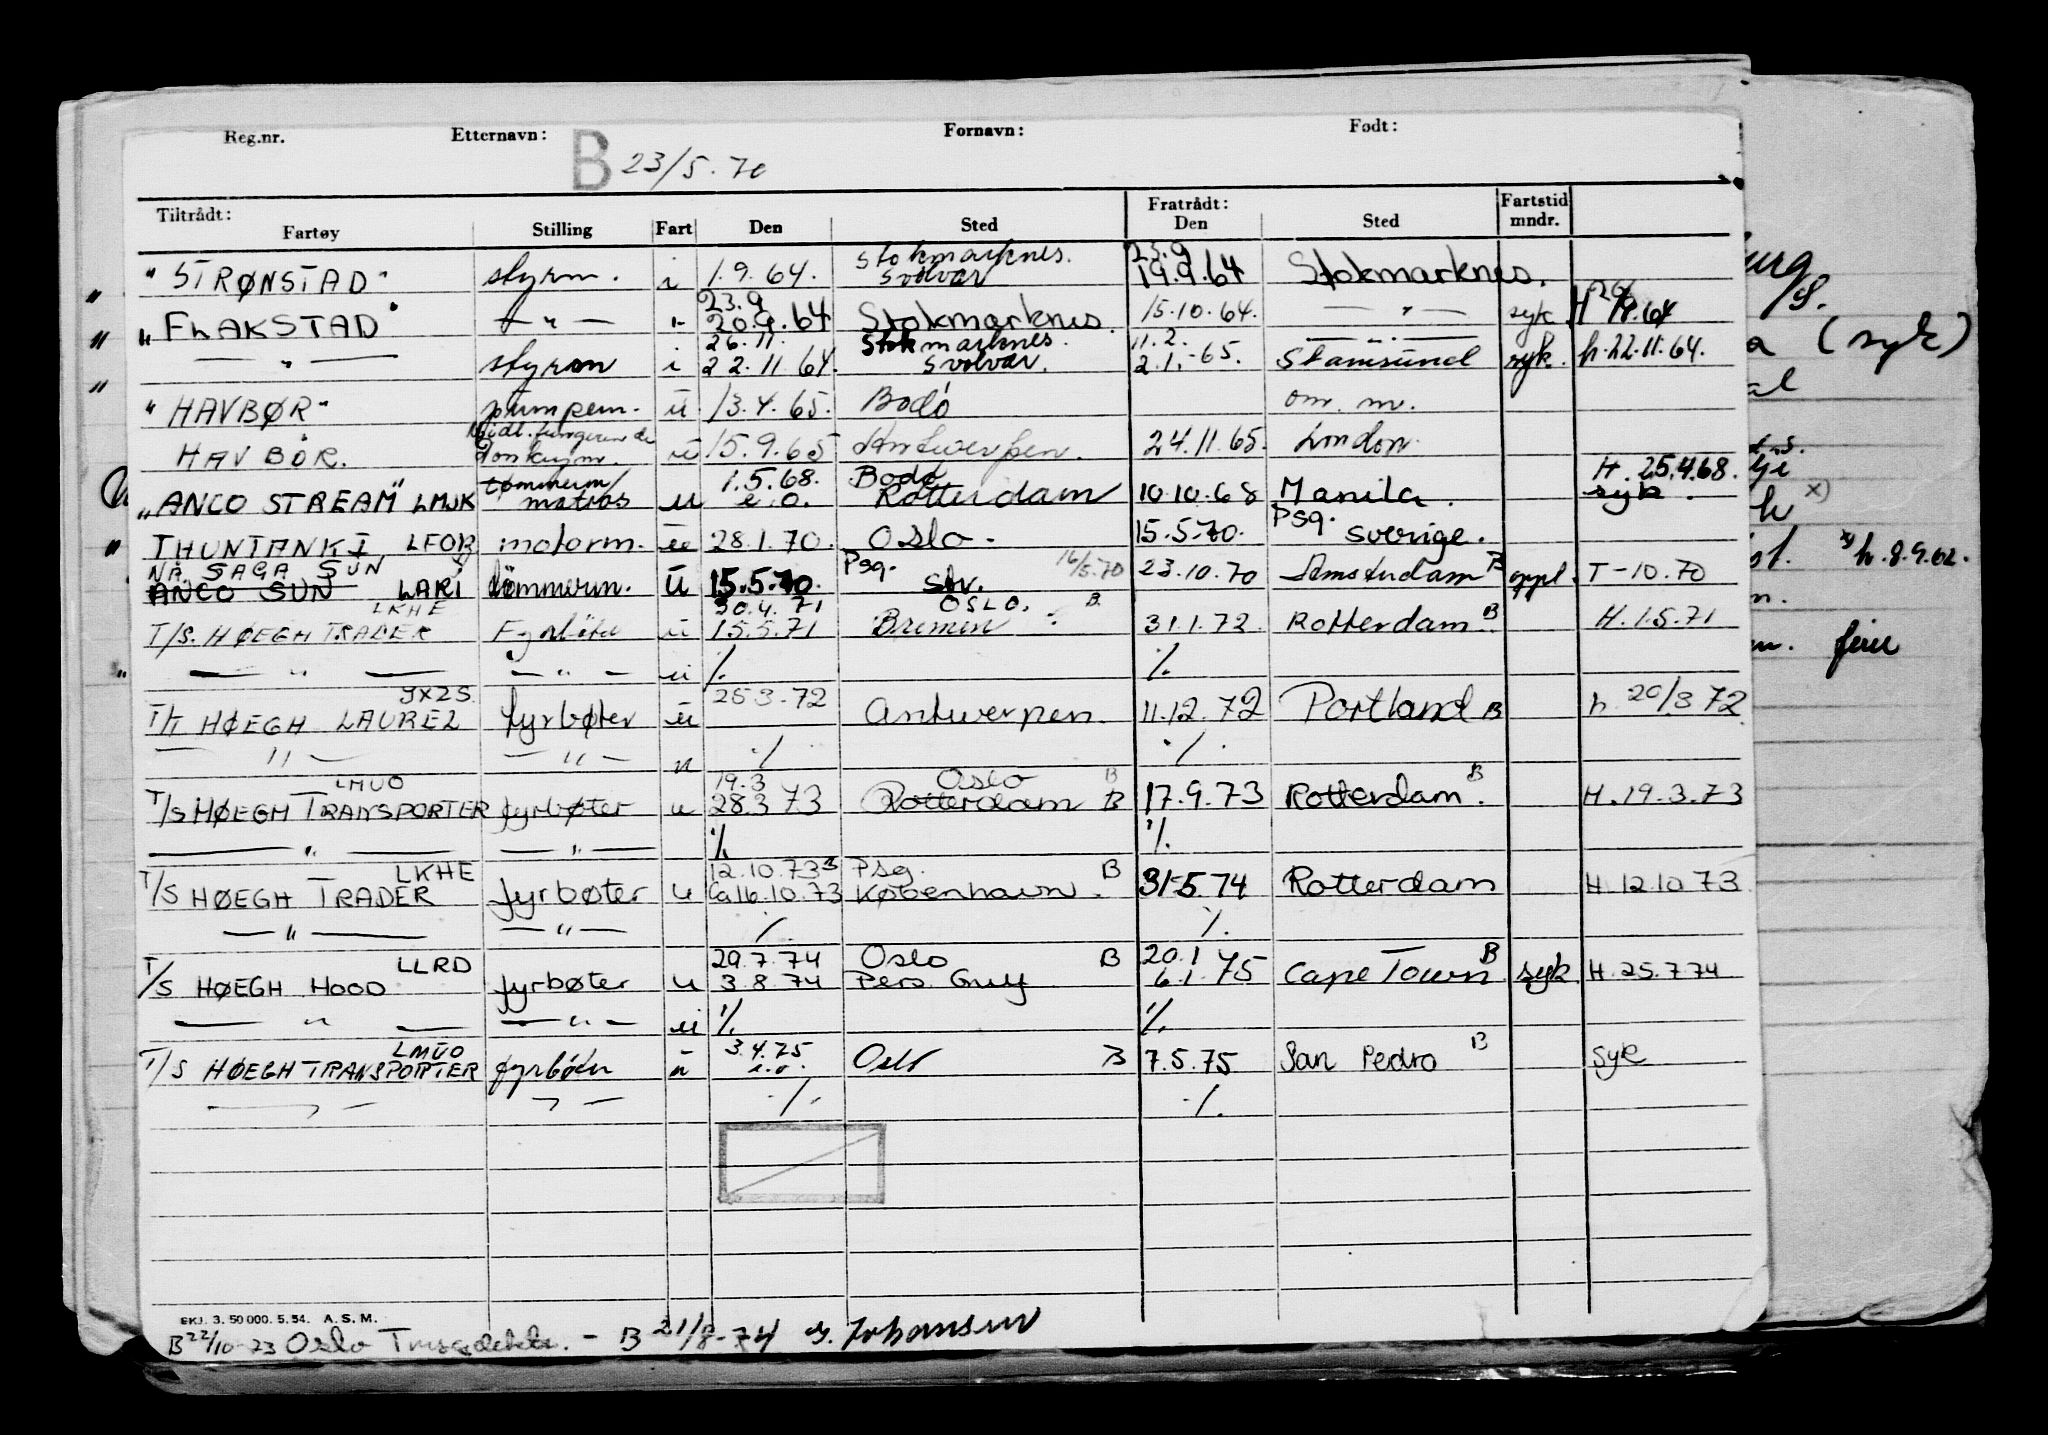 Reg.nr. Etternavn: Fornavn: Født:
B 23/5.70
Tiltrådt: Fratrådt: Fartstid
Fartøy Stilling Fart Den Sted Den Sted mndr.
Stokmarknes. 23.9
"STRØNSTAD" styrm. i 1.9.64. Svolvær 19.9.64 Stokmarknes.
23.9
"FLAKSTAD" — " — " 20.9.64 Stokmarknes. 15.10.64. — " — syk H 64
26.11. Stokmarknes. 11.2. — " —
— " — styrm i 22.11.64. Svolvær. 2.1.-65. Stamsund syk. h.22.11.64.
"HAVBØR" pumpem. u 13.4.65. Bodø om. m.
Midl. fungerende
HAVBØR. donkeym. u 15.9.65 Antwerpen. 24.11.65. London.
tømmerm 1.5.68. Bodø H. 25.4.68.
"ANCO STREAM" LMJK matros u e.o. Rotterdam 10.10.68 Manila. syk.
Psg.
THUNTANK I, LFOB motorm. u 28.1.70. Oslo. 15.5.70. Sverige.
NÅ. SAGA SUN Psg. 16/5.70
ANCO SUN LARI tömmerm. U 15.5.70. Stv. 23.10.70 Amsterdam B oppl. T-10.70
LKHE 30.4.71 OSLO. B.
T/S. HØEGH TRADER Fyrböter u 15.5.71 Bremen 31.1.72. Rotterdam B. H.1.5.71
— " — — " — u ./.  ./.
JXZS 25.3.72
T/T HØEGH LAUREL fyrbøter u Antwerpen. 11.12.72 Portland B h. 20/3 72.
— " — — " — u ./. ./.
LMUO 19.3 Oslo B
T/S HØEGH TRANSPORTER fyrbøter u 28.3 73 Rotterdam B 17.9.73 Rotterdam. B H.19.3.73
— " — — " — ./. ./.
LKHE 12.10.73 B Psg. B
T/S HØEGH TRADER fyrbøter u Ca 16.10.73 København. 31.5.74 Rotterdam H.12.10 73
— " — — " — ./. ./.
LLRD 29.7.74 Oslo B 20.1 B
T/S HØEGH HOOD fyrbøter u 3.8.74 Pers. Gulf 6.1.75 Cape Town syk H.25.7.74
— " — — " — u ./. ./.
LMUO 3.4.75
T/S HØEGH TRANSPORTER fyrböter u e.o. Oslo B 7.5.75 San Pedro B syk
— " — — " — ./. ./.
SKJ. 3. 50 000. 5.54. A.S.M.
B 22/10-73 Oslo - B 21/8-74 Johansen
(syk)
x) h.8.9.62.